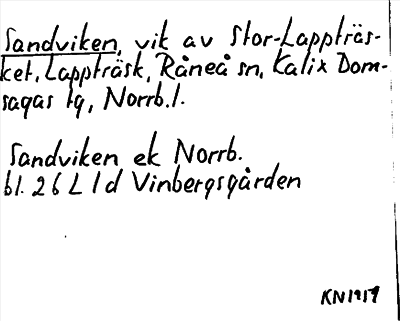 Sandviken, vik av Stor-Lappträs-
ket, Lappträsk, Råneå sn, Kalix Dom-
sagas tg, Norrb.l.
Sandviken ek Norrb.
bl. 26 L 1 d Vinbergsgården
KN1917